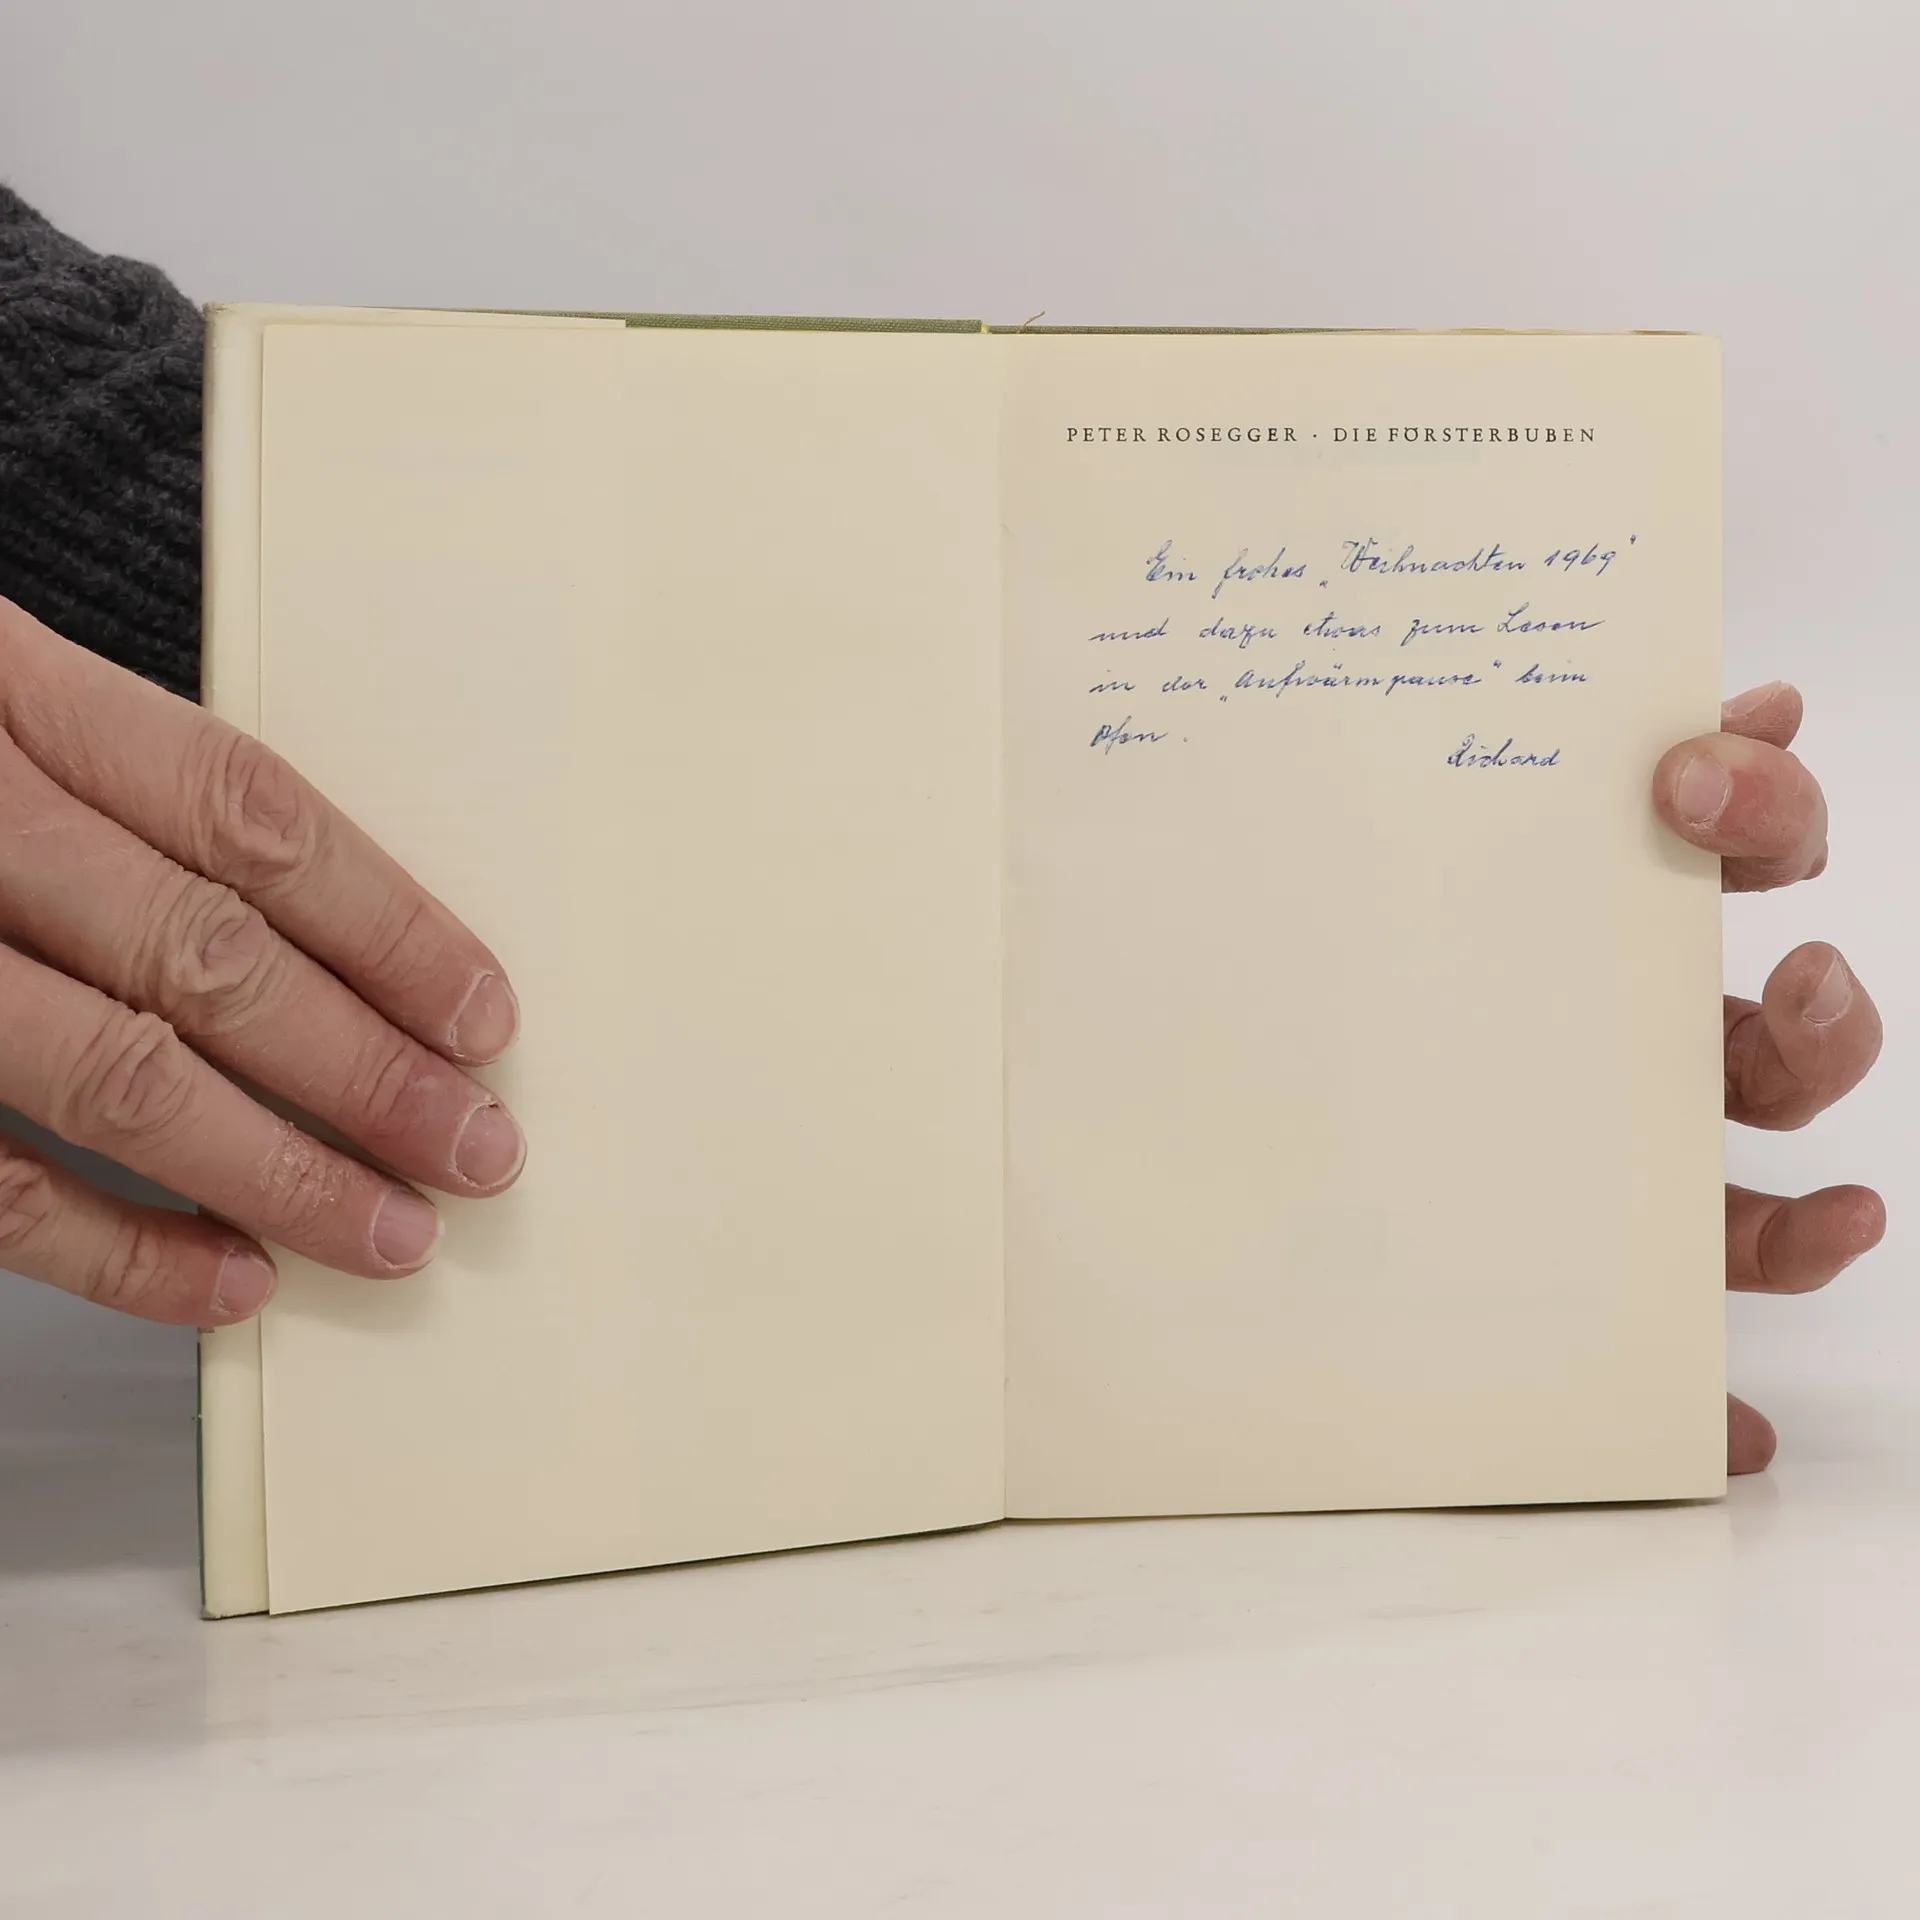 PETER ROSEGGER · DIE FÖRSTERBUBEN
Ein frohes „Weihnachten 1969"
und dazu etwas zum Lesen
in der „Aufwärmpause" beim
Ofen.
Richard